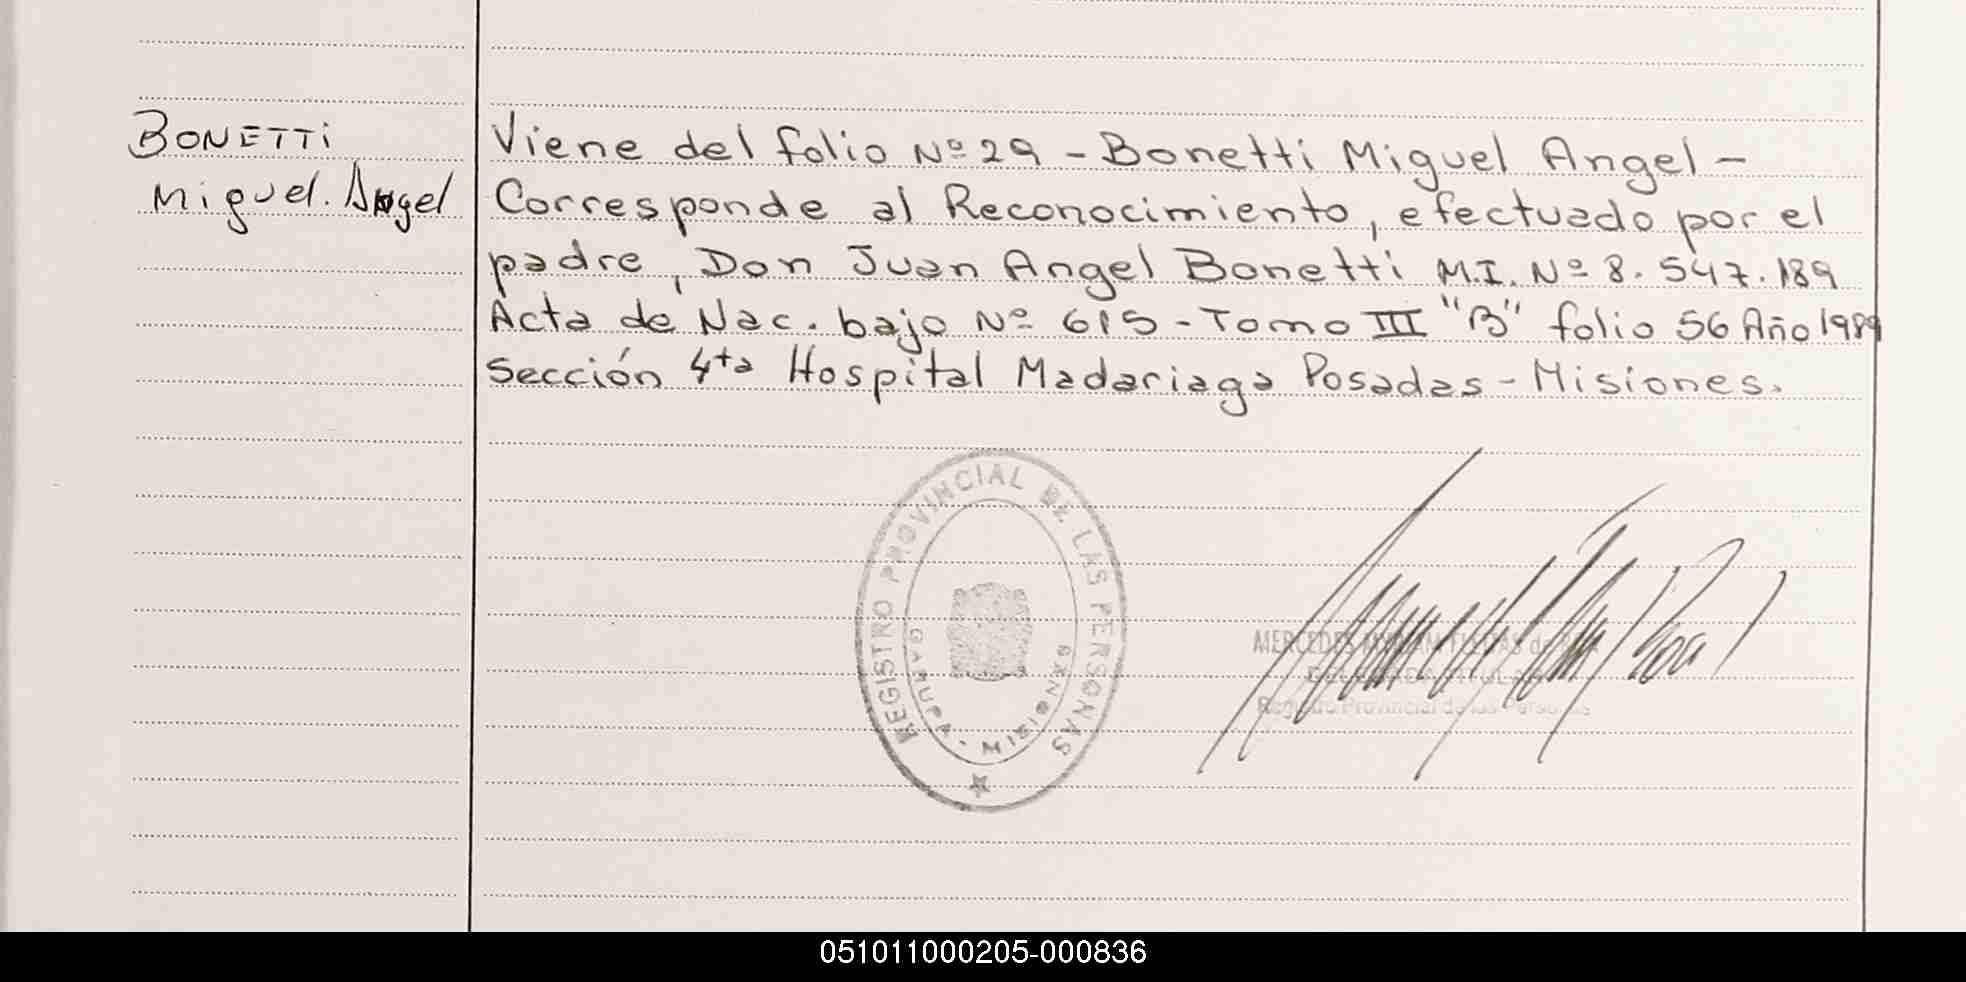 BONETTi
Miguel. Angel
Viene del folio Nº 29 - Bonetti Miguel Angel -
Corresponde al Reconocimiento, efectuado por el
padre, Don Juan Angel Bonetti M.I. Nº 8.547.189
Acta de Nac. bajo Nº 615 - Tomo III "B" folio 56 Año 1989
Sección 4ta Hospital Madariaga Posadas - Misiones.
REGISTRO PROVINCIAL DE LAS PERSONAS
GARUPA - MISIONES
MERCEDES de
Registro Provincial de las Personas
051011000205-000836